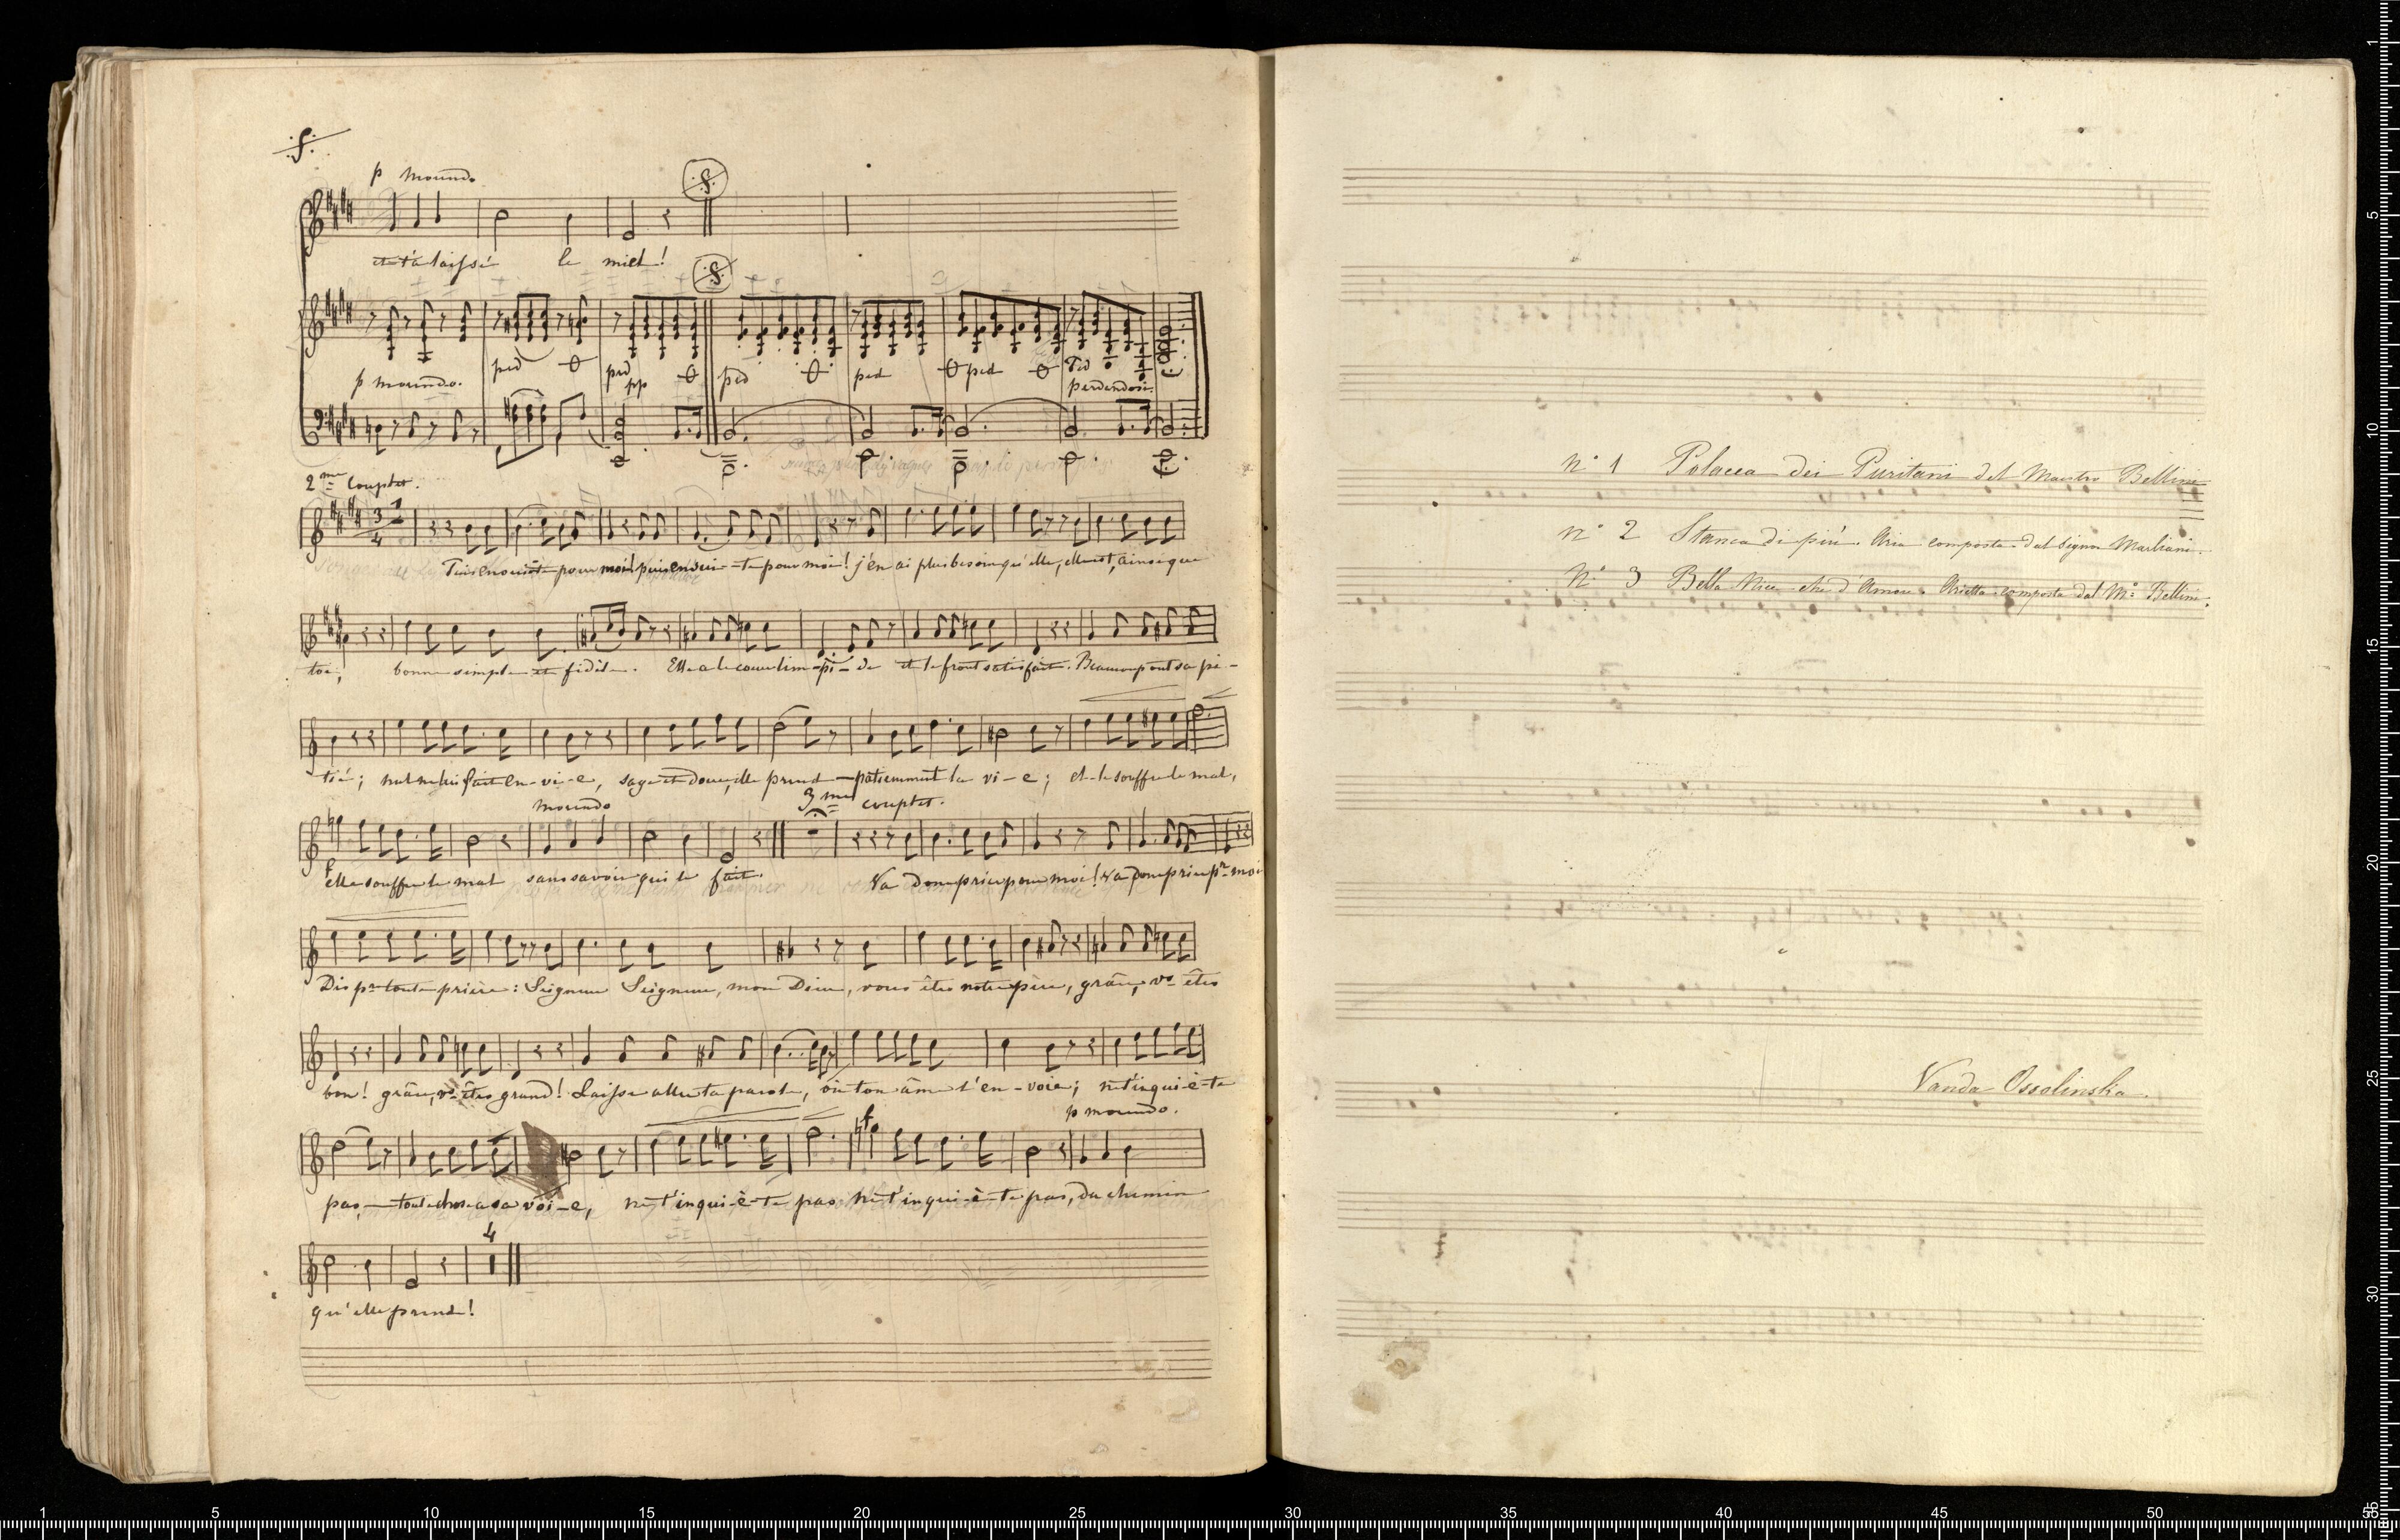 p morendo
et t'a laissé le miel!
p morendo. ped ped pp ped ped ped Ped perdendosi
2me Couplet.
3 4 1
Puis ensuite pour moi! puis ensui-te pour moi! j'en ai plus besoin qu'elle, elle est, ainsi que
toi, bonne simple et fidèle. Elle a le coeur lim-pi-de et le front satisfait. Beaucoup ont sa pi-
tié; nul ne lui fait en-vi-e, sage et douce, elle prend patiemment la vi-e; el-le souffre le mal,
morendo 3me couplet.
f
elle souffre le mal sans savoir qui le fait. Va donc prier pour moi! Va donc prier pr moi
Dis pr toute prière: Seigneur Seigneur, mon Dieu, vous êtes notre père, grâce, vs êtes
bon! grâce, vs êtes grand! Laisse aller ta parole, où ton âme l'en-voie; ne t'inqui-è-te
f p morendo.
pas, toute chose a sa voi-e, ne t'inqui-è-te pas ne t'inqui-è-te pas, du chemin
4
qu'elle prend!
n° 1 Polacca dei Puritani del Maestro Bellini
n° 2 Stanca di più. Aria composta dal Signor Marliani.
N° 3 Bella Nice che d'Amore Arietta composta dal M° Bellini.
Vanda Ossolinska.
1 5 10 15 20 25 30 35 40 45 50 55
1 5 10 15 20 25 30 35